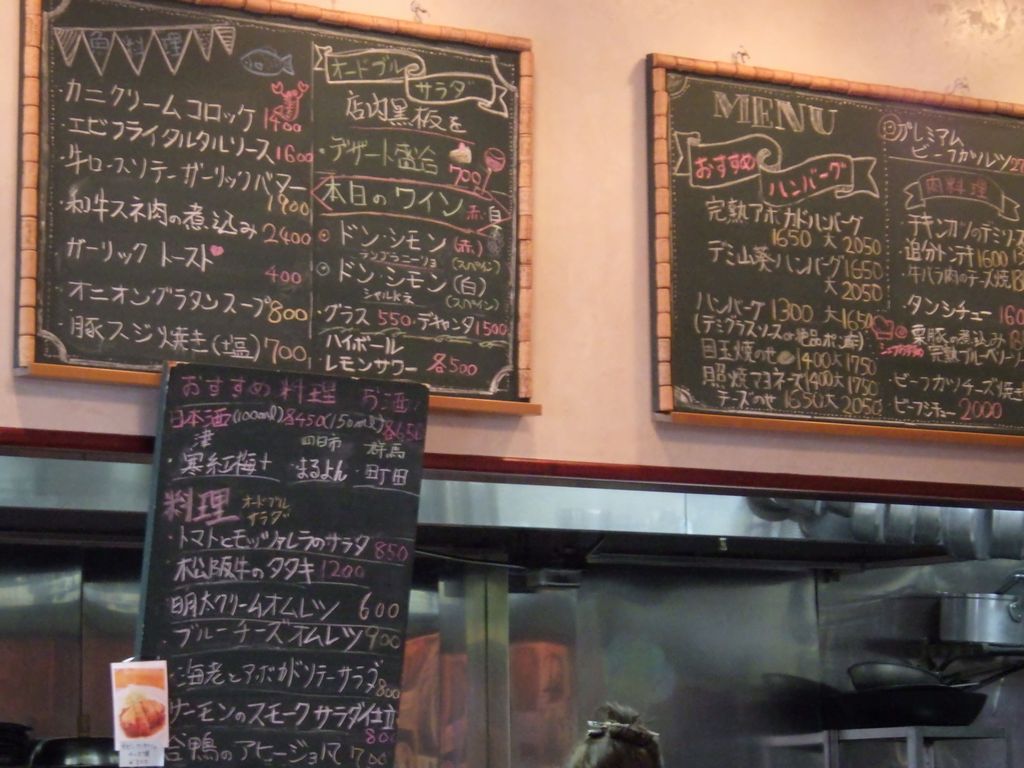 魚料理
カニクリームコロッケ 1400
エビフライタルタルソース 1600
牛ロースソテーガーリックバター
1900
和牛スネ肉の煮込み 2400
ガーリックトースト
400
オニオングラタンスープ 800
豚スジ焼き(塩) 700
オードブル
サラダ
店内黒板を
・デザート盛合
700
本日のワイン 赤・白
ドン・シモン(赤)
(スペイン)
ドン・シモン(白)
シャルドネ
(スペイン)
・グラス 550・デキャンタ 1500
ハイボール
レモンサワー 各500
MENU
おすすめ
ハンバーグ
完熟アボカドハンバーグ
1650 大 2050
デミ山葵ハンバーグ 1650
大 2050
ハンバーグ 1300 大 1650
(デミグラスソースor絶品ポン酢)
目玉焼のせ 1400大1750
照焼マヨネーズ 1400大1750
チーズのせ 1650大2050
プレミアム
ビーフカツレツ
肉料理
チキンカツのデミソース
追分トン汁 1600
牛バラ肉のチーズ焼
タンシチュー
栗豚の煮込み
完熟ブルーベリー
ビーフカツチーズ焼き
ビーフシチュー 2000
おすすめ料理 お酒
日本酒(1000ml) 8450(150ml) 8650
津 四日市 群馬
・寒紅梅 ・まるよん ・町田
料理 オードブル
サラダ
・トマトとモッツァレラのサラダ 850
・松阪牛のタタキ 1200
明太クリームオムレツ 600
・ブルーチーズオムレツ 900
・海老とアボカドソテーサラダ
800
サーモンのスモークサラダ仕立
800
合鴨のアヒージョ 700